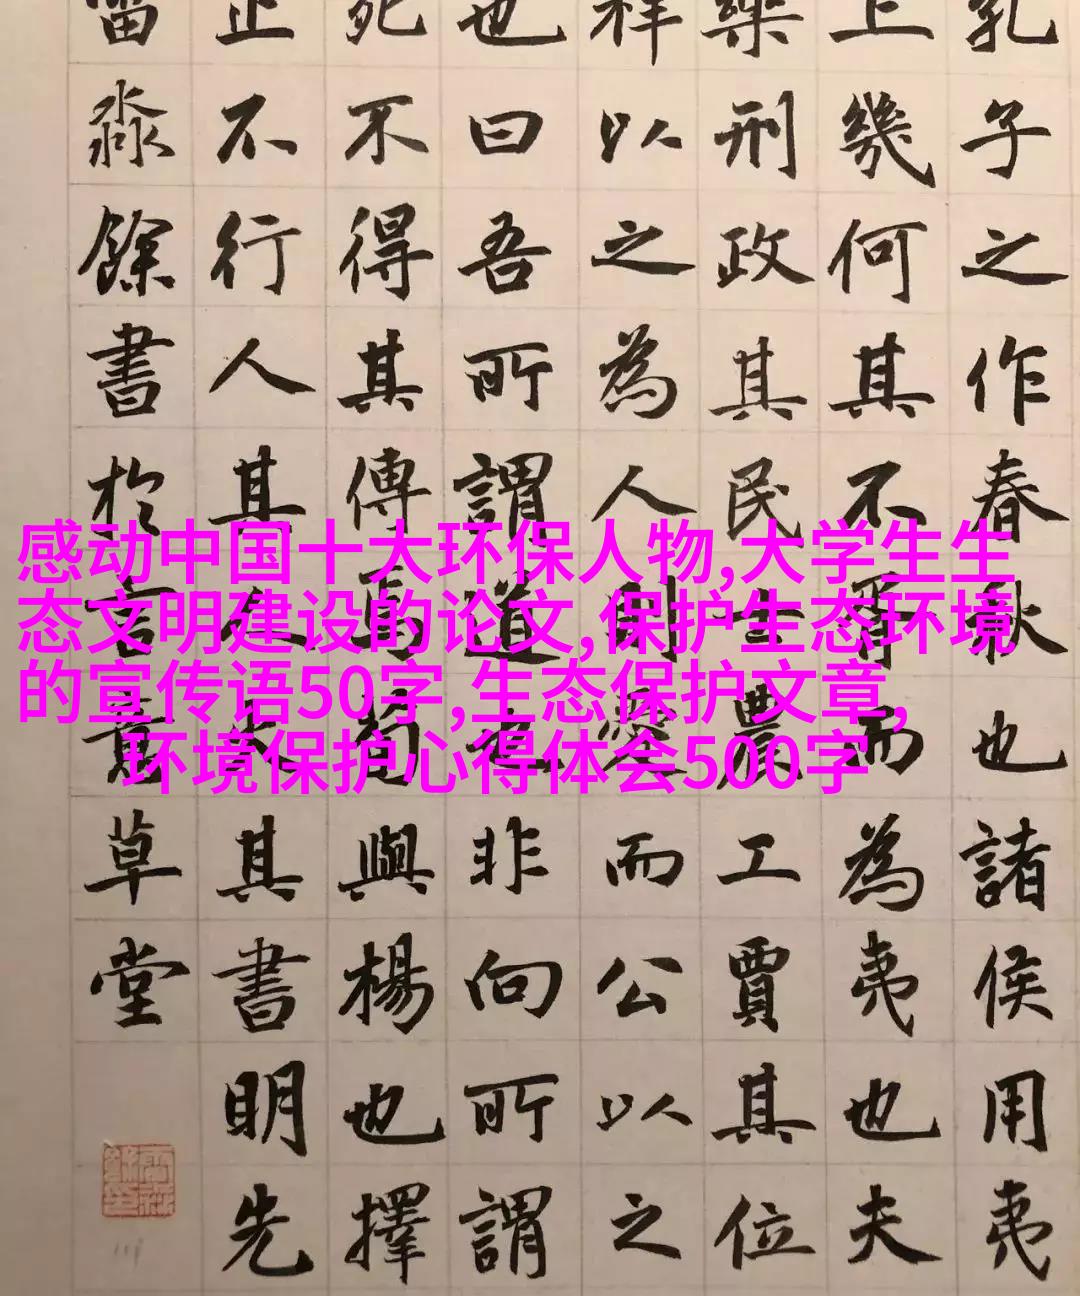 感动中国十大环保人物,大学生生
态文明建设的论文,保护生态环境
的宣传语50字,生态保护文章,
环境保护心得体会500字
孔子之作春秋也諸侯用夷
上幾何其不胥而為夷也夫
樂刑政其民士農工賈其位
祥以之為人則愛而公以之
也曰吾所謂道也非向所謂
死不得其傳焉荀與楊也擇
正不行人其人火其書明先
淼餘書於言意草堂